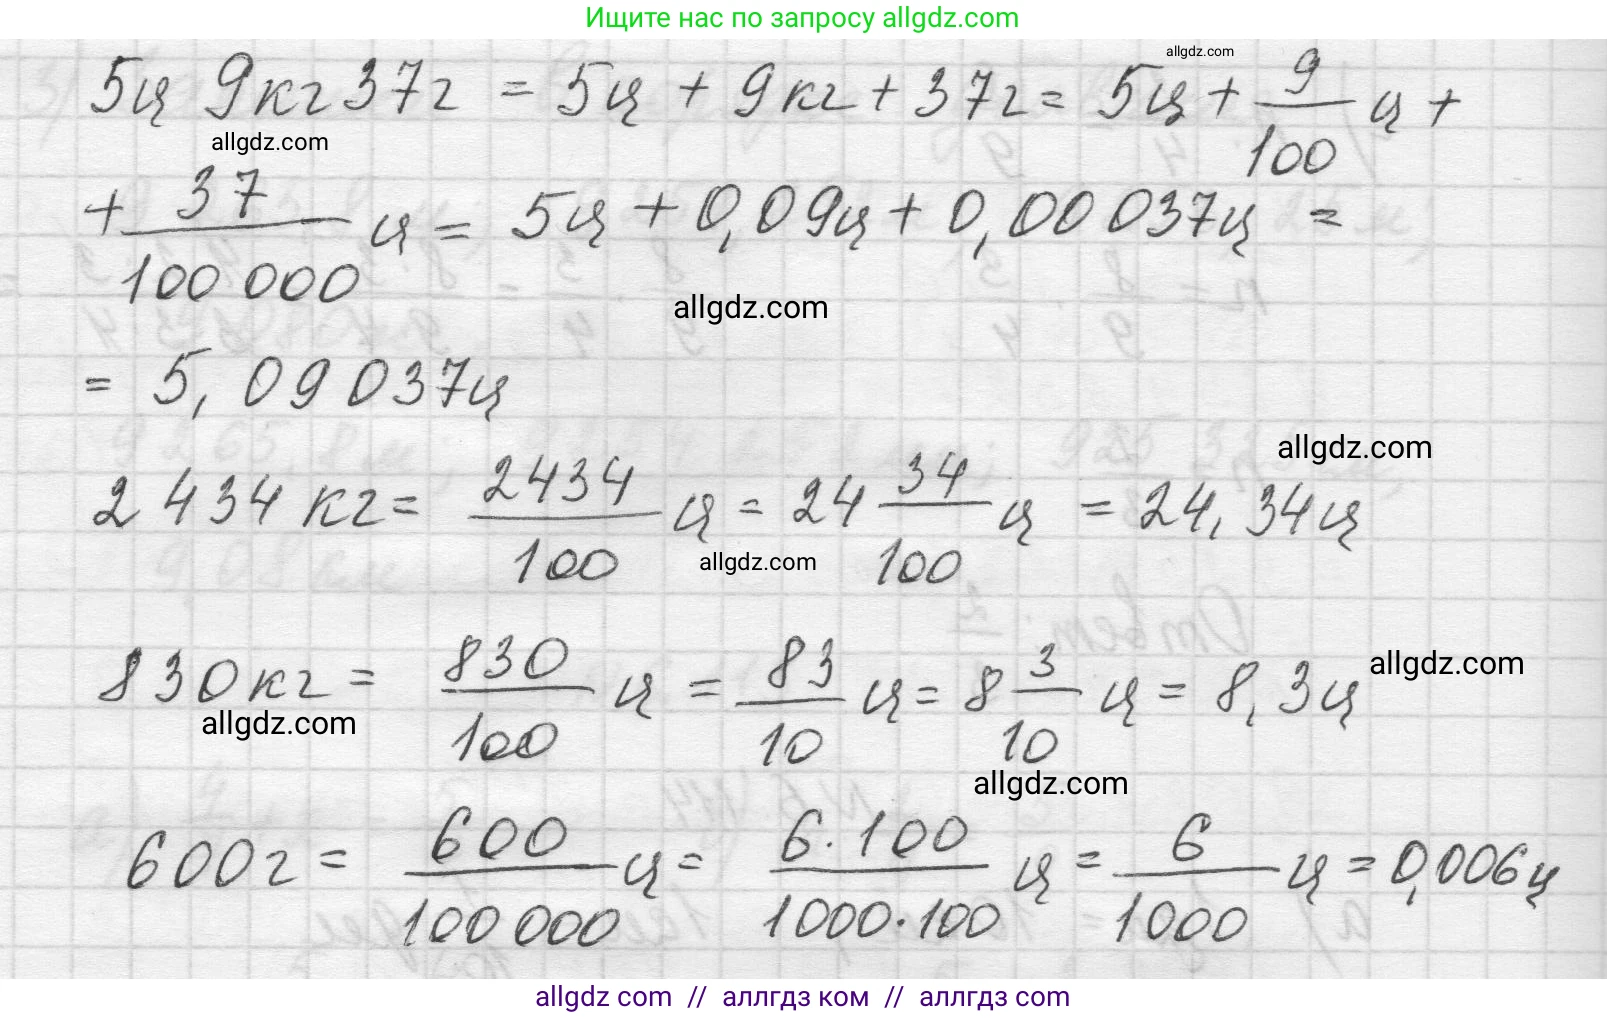 Ищите нас по запросу allgdz.com
allgdz.com
5ц 9кг 37г = 5ц + 9кг + 37г = 5ц + 9/100 ц +
allgdz.com
+ 37/100 000 ц = 5ц + 0,09ц + 0,00 037ц =
allgdz.com
= 5,09 037ц
allgdz.com
2 434 кг = 2434/100 ц = 24 34/100 ц = 24,34ц
allgdz.com
830кг = 830/100 ц = 83/10 ц = 8 3/10 ц = 8,3ц
allgdz.com
allgdz.com
allgdz.com
600г = 600/100 000 ц = 6·100/1000·100 ц = 6/1000 ц = 0,006ц
allgdz com // аллгдз ком // аллгдз com